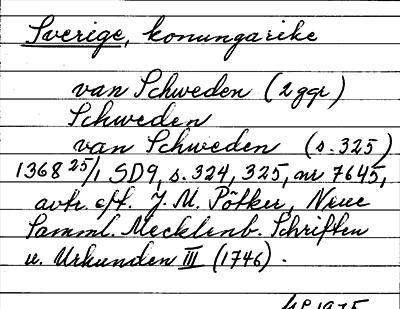 Sverige, konungarike
van Schweden (2 ggr)
Schweden
van Schweden (s. 325)
1368 25/1, SD9, s. 324, 325, nr 7645,
avtr. eft. J. M. Pötker, Neue
Samml. Mecklenb. Schriften
u. Urkunden III (1746).
1975